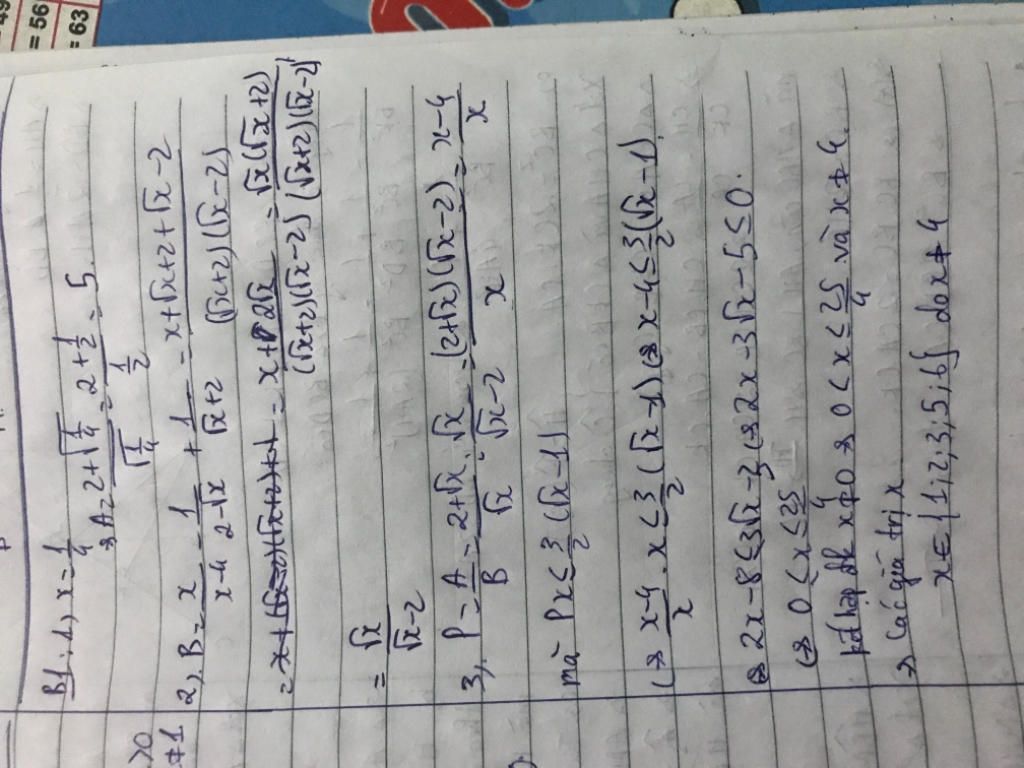 = 49
= 56
= 63
B1: 1, x = 1/4
→ A = (2+√(1/4))/√(1/4) = (2+1/2)/(1/2) = 5.
2, B = x/(x-4) - 1/(2-√x) + 1/(√x+2) = (x+√x+2+√x-2)/((√x+2)(√x-2))
= (x+2√x)/((√x+2)(√x-2)) = √x(√x+2)/((√x+2)(√x-2))
= √x/(√x-2)
3, P = A/B = (2+√x)/√x : √x/(√x-2) = (2+√x)(√x-2)/x = (x-4)/x
mà Px ≤ 3/2 (√x-1)
(⇔ (x-4)/x . x ≤ 3/2 (√x-1) ⇔ x-4 ≤ 3/2 (√x-1)
⇔ 2x-8 ≤ 3√x-3 ⇔ 2x-3√x-5 ≤ 0.
⇔ 0 < x ≤ 25/4
kết hợp đk x≠0 → 0 < x ≤ 25/4 và x ≠ 4.
→ Các giá trị x
x ∈ {1; 2; 3; 5; 6} do x ≠ 4
>0
≠1